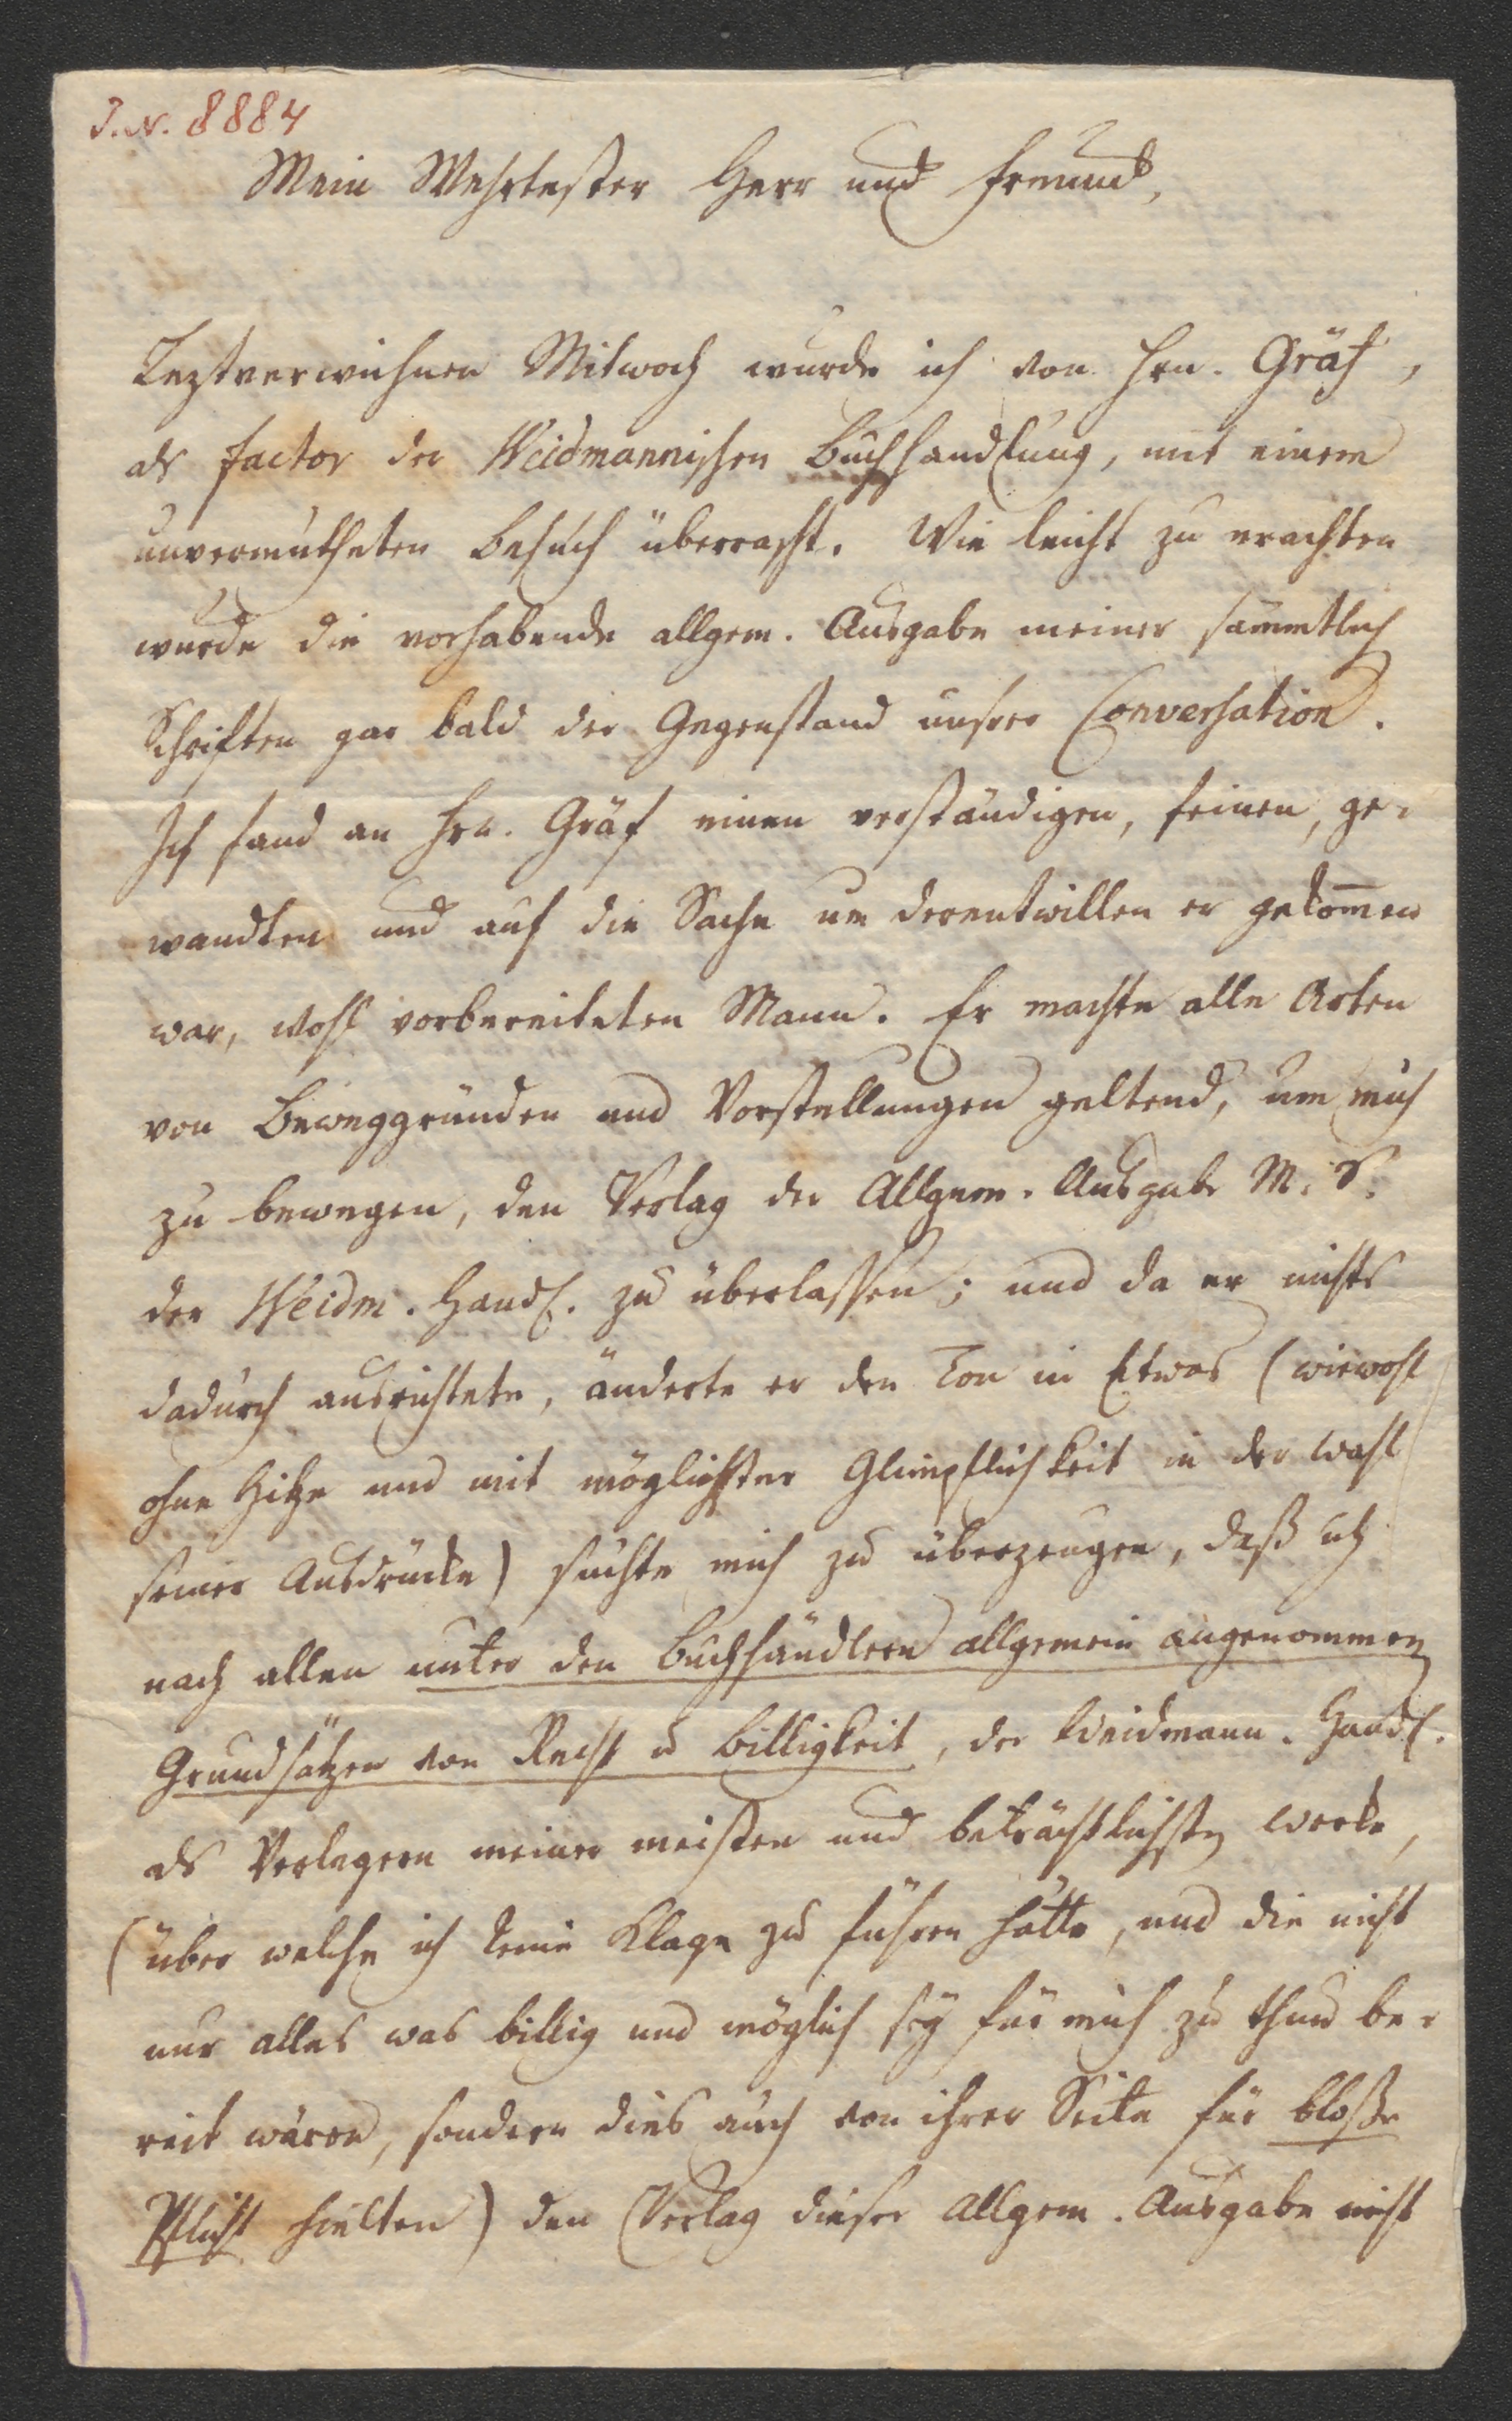 J.N. 8884
Mein Wehrtester Herr und Freund,
Leztverwichnen Mitwoch wurde ich von Hrn. Gräf,
als Factor der Weidmannischen Buchhandlung, mit einem
unvermutheten Besuch überrascht. Wie leicht zu erachten
wurde die vorhabende allgem. Ausgabe meiner sämmtlich
Schriften gar bald der Gegenstand unsrer Conversation.
Ich fand an Hrn. Gräf einen verständigen, feinen, ge-
wandten und auf die Sache um derentwillen er gekom̄en
war, wohl vorbereiteten Mann. Er machte alle Arten
von Beweggründen und Vorstellungen geltend, um mich
zu bewegen, den Verlag der Allgem. Ausgabe M. S.
der Weidm. Handl. zu überlassen; und da er nichts
dadurch ausrichtete, änderte er den Ton in Etwas (wiewohl
ohne Hitze und mit möglichster Glimpflichkeit in der Wahl
seiner Ausdrücke) suchte mich zu überzeugen, daß ich
nach allen unter den Buchhändlern allgemein angenommen
Grundsätzen von Recht u Billigkeit, der Weidmann. Handl.
als Verlegern meiner meisten und beträchtlichsten Werke,
(über welche ich keine Klage zu führen hätte, und die nicht
nur alles was billig und möglich sey für mich zu thun be-
reit wären, sondern dies auch von ihrer Seite für bloße
Pflicht hielten) den Verlag dieser allgem. Ausgabe nicht